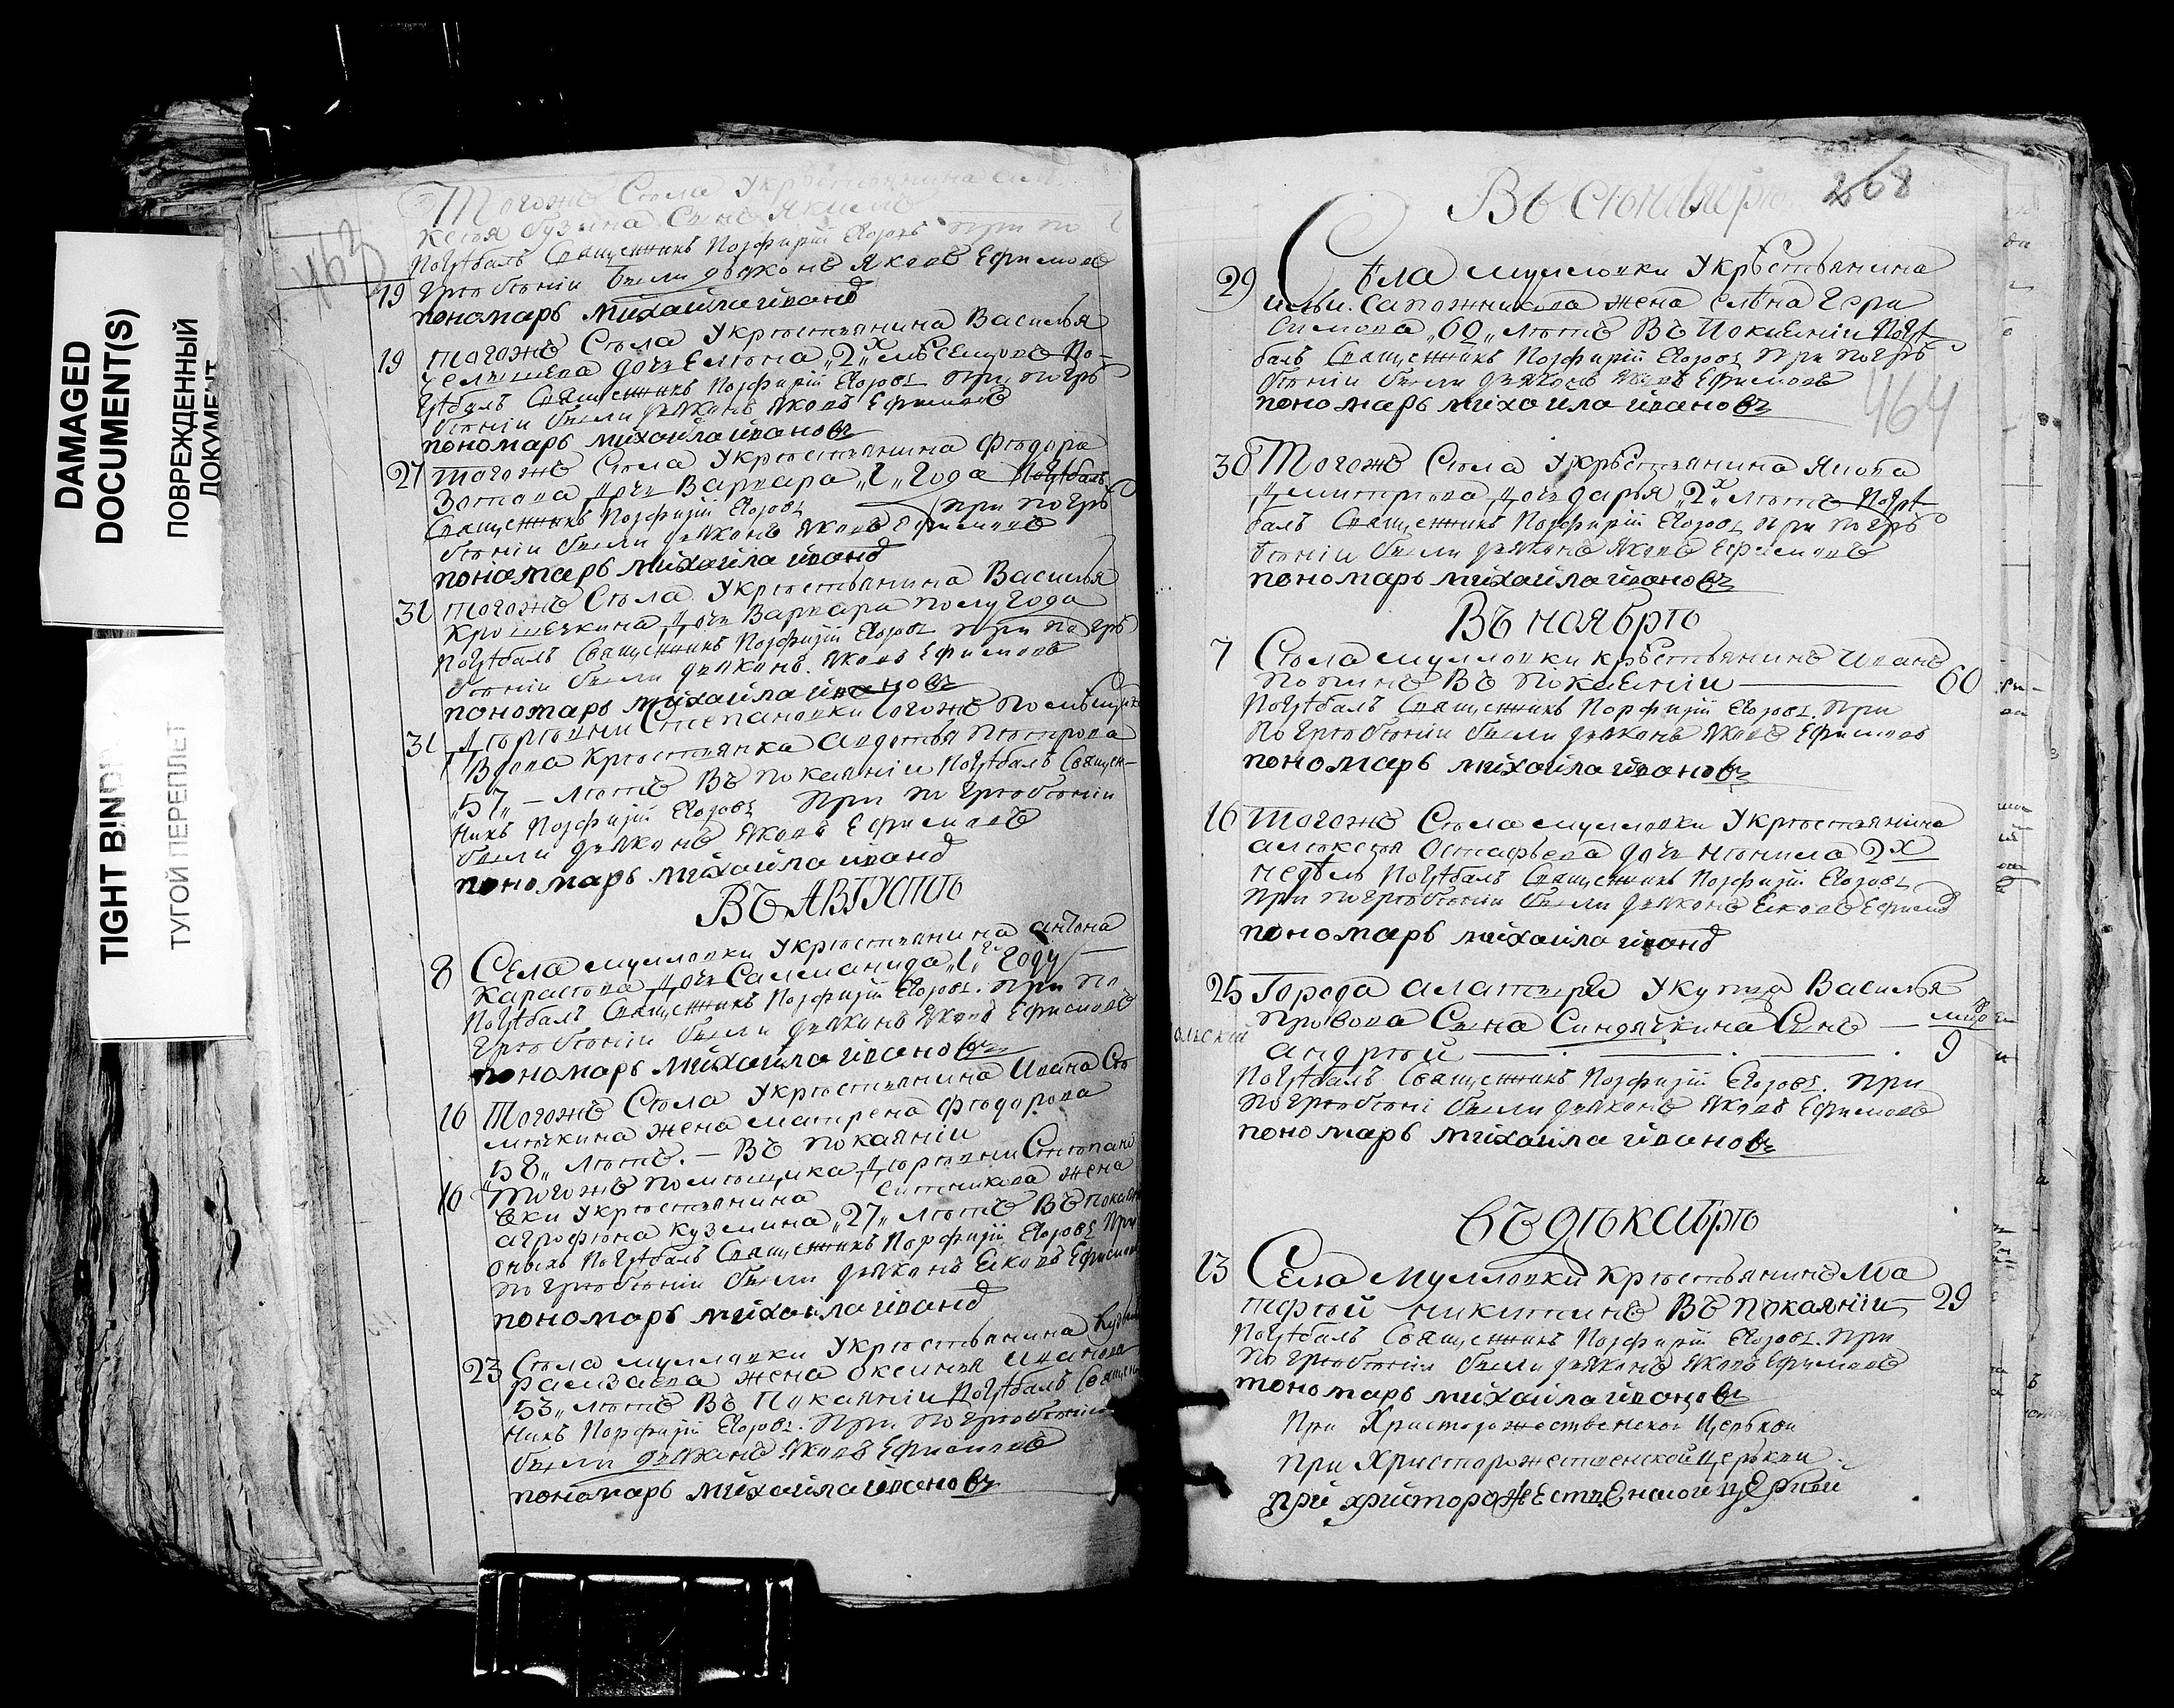 DAMAGED
DOCUMENT(S)
ПОВРЕЖДЕННЫЙ
ДОКУМЕНТ
TIGHT BIND
ТУГОЙ ПЕРЕПЛЕТ
463
Тогожъ Села Укрестьянина
Сынъ Якимъ
Погребалъ Священникъ Порфирій Егоровъ при по
19 гребеніи были дьяконъ Яковъ Ефимовъ
пономарь михайла иванов
19 тогожъ Села Укрестьянина Василья
дочь Елена „2х мѣсецовъ По-
гребалъ Священникъ Порфирій Егоровъ при погрѣ
беніи были дьяконъ Яковъ Ефимовъ
пономарь михайла ивановъ
27 тогожъ Села Укрестьянина Федора
Зотова дочь Варвара „1„ Года Погребалъ
Священникъ Порфирій Егоровъ при погрѣ
беніи были дьяконъ Яковъ Ефимовъ
пономарь михайла иванов
31 тогожъ Села Укрестьянина Василья
дочь Варвара полугода
Погребалъ Священникъ Порфирій Егоровъ при погрѣ
беніи были дьяконъ Яковъ Ефимовъ
пономарь михайла ивановъ
31 Деревни Степановки тогожъ помѣщика
Вдова Крестьянка Авдотья Петрова
„57„ – летъ Въ покаяніи Погребалъ Священ-
никъ Порфирій Егоровъ При погребеніи
были дьяконъ Яковъ Ефимовъ
пономарь михайла иванов
ВЪ АВГУСТЕ
8 Села мулловки Укрестьянина антона
Карасева дочь Саламанида „1„ Году
Погребалъ Священникъ Порфирій Егоровъ. при по
гребеніи были дьяконъ Яковъ Ефимовъ
пономарь михайла ивановъ
16 Тогожъ Села Укрестьянина Ивана Се
жена матрена федорова
„58„ летъ. – Въ покаяніи
16 тогожъ помещика Деревни Степано
вки Укрестьянина Ситникова жена
агрофена кузмина „27„ летъ Въ покаяні
оныхъ Погребалъ Священникъ Порфирій Егоровъ При
погребеніи были дьяконъ Яковъ Ефимов
пономарь михайла иванов
23 Села мулловки Укрестьянина
рамзаева жена оксинья иванова
„53„ летъ Въ Покаяніи Погребалъ Священ
никъ Порфирій Егоровъ. При погребеніи
были дьяконъ Яковъ Ефимовъ
пономарь михайла ивановъ
268
Въ сентябре
29 Села мулловки Укрѣстьянина
Сапожникова жена елѣна Гера
симова „60„ летъ Въ Покаеніи Погре
балъ Священникъ Порфирій Егоровъ При погрѣ
беніи были дьяконъ Яковъ Ефимовъ
пономарь михайла ивановъ
464
30 Тогожъ Села Укрѣстьянина Якова
Дмитриева дочь дарья „2х„ летъ Погре
балъ Священникъ Порфирій Егоровъ при погрѣ
беніи были дьяконъ Яковъ Ефимовъ
пономарь михайла ивановъ
Въ ноябре
7 Села мулловки крѣстьянинъ Иванъ
Въ покаеніи — 60
Погребалъ Священникъ Порфирій Егоровъ. при
погребеніи были дьяконъ Яковъ Ефимовъ
пономарь михайла ивановъ
16 Тогожъ Села мулловки Укрестьянина
алексея Остафьева дочь Ненила 2х
недѣль Погребалъ Священникъ Порфирій Егоровъ
при погребеніи были дьяконъ Яковъ Ефимов
пономарь михайла иванов
25 Города алатыря Укупца Василья
Сына Синдячкина Сынъ —
андрей — 9
Погребалъ Священникъ Порфирій Егоровъ. при
погребені были дьяконъ Яковъ Ефимовъ
пономарь михайла ивановъ
въ декабре
13 Села Мулловки Крестьянинъ Ма
тфей никитинъ Въ Покаяніи – 29
Погребалъ Священникъ Порфирій Егоровъ. при
погребеніи были дьяконъ Яковъ Ефимовъ
пономарь михайла ивановъ
При Христорожественской Церькви
при Христорожественской Церькви
при христорожественской церкви